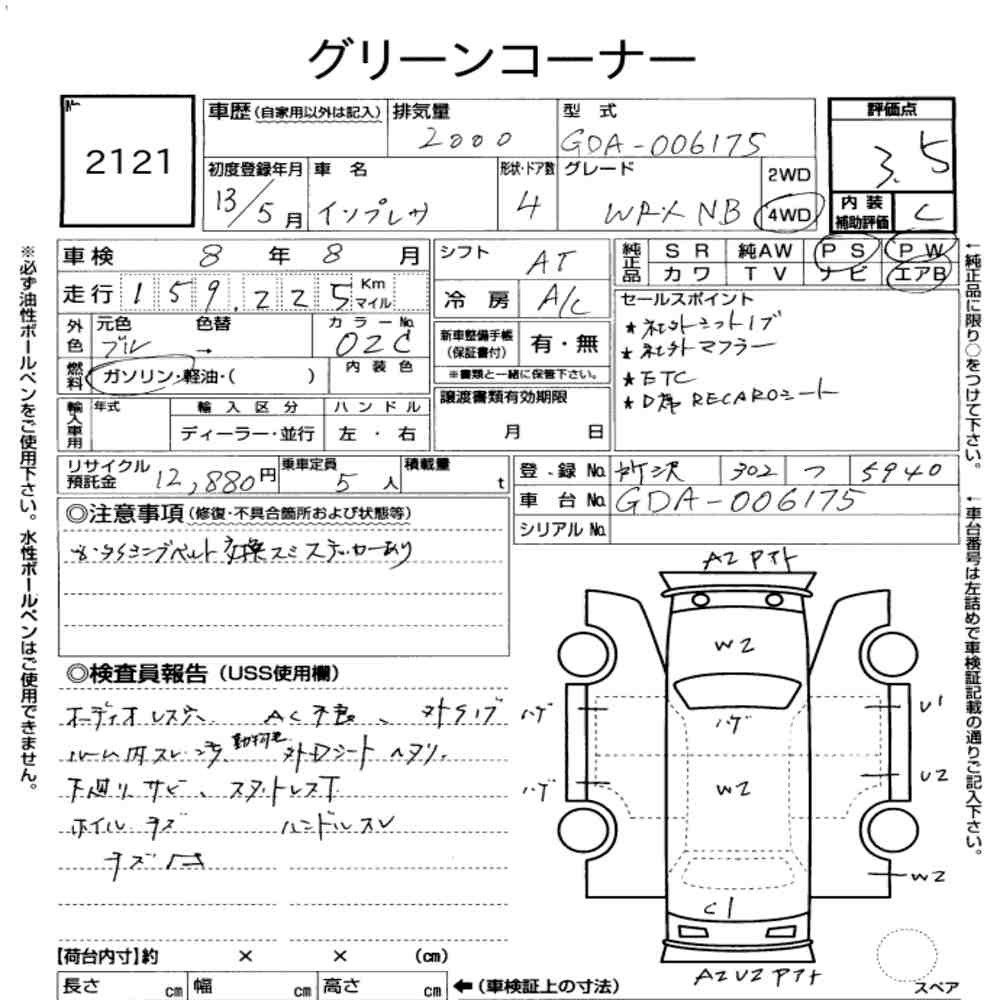 グリーンコーナー
2121
車歴(自家用以外は記入)
排気量
2000
型 式
GDA-006175
評価点
3.5
初度登録年月
13/5月
車 名
インプレサ
形状・ドア数
4
グレード
WRX NB
2WD
4WD
内 装
補助評価
C
車検 8 年 8 月
シフト AT
純正品 SR 純AW PS PW
カワ TV ナビ エアB
走行 159,225 Km マイル
冷 房 A/C
セールスポイント
★社外マフラー
★ETC
★D席 RECAROシート
外色 元色 色替 カラーNo.
ブル → 02C
新車整備手帳
(保証書付)
有・無
※書類と一緒に保管下さい。
燃料 ガソリン・軽油・( )
内装色
輸入車用 年式 輸入区分 ハンドル
ディーラー・並行 左・右
譲渡書類有効期限
月 日
リサイクル
預託金
12,880円
乗車定員
5人
積載量
t
登録No. 所沢 302 つ 5940
車台No. GDA-006175
シリアルNo.
◎注意事項(修復・不具合箇所および状態等)
タイミングベルト交換スミ ステッカーあり
◎検査員報告(USS使用欄)
オーディオレス AC不良、
ルーム内スレ 動物毛 Dシートヘタリ
下回りサビ、スタットレスT
ホイルキズ ハンドルスレ
【荷台内寸】約 × × (cm)
長さ cm 幅 cm 高さ cm
←(車検証上の寸法)
※必ず油性ボールペンをご使用下さい。水性ボールペンはご使用できません。
←純正品に限り○をつけて下さい。
←車台番号は左詰めで車検証記載の通りご記入下さい。
W2
ハゲ
ハゲ
U1
W2
ハゲ
U2
W2
C1
スペア